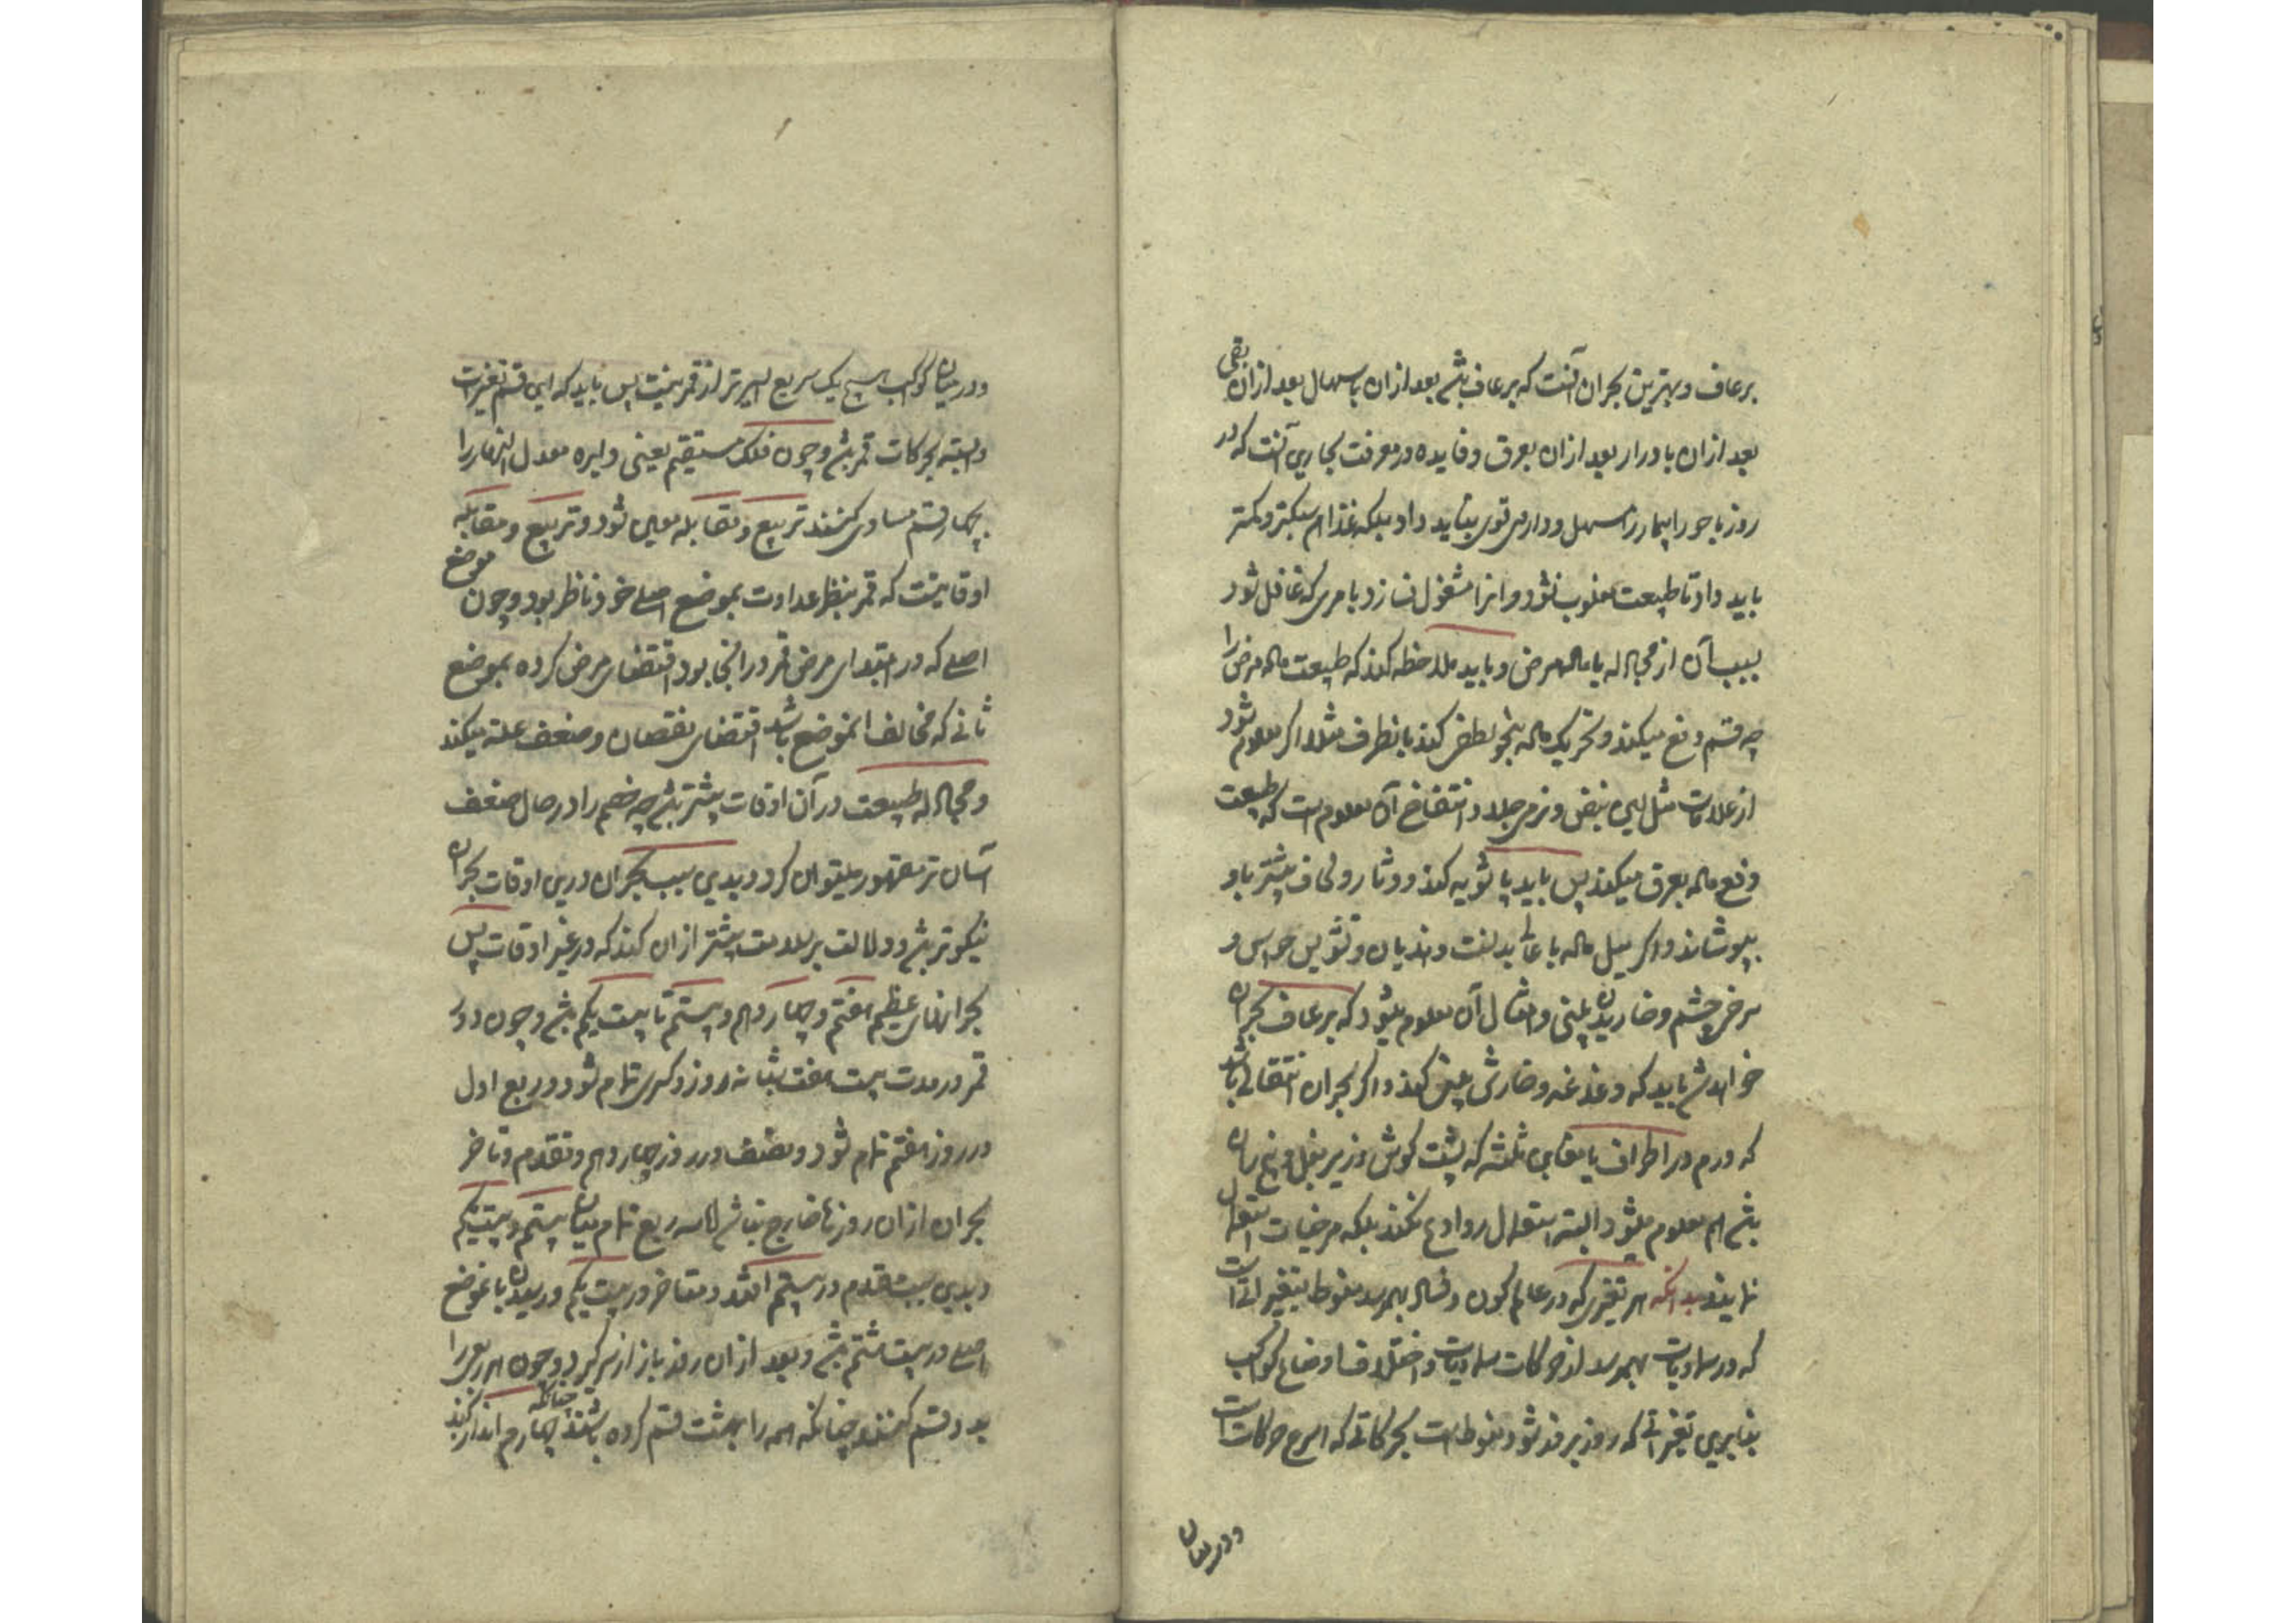 برعاف و بهترین بحران آنست که برعاف باشد بعد ازان باسهال بعد ازان بقی
بعد ازان بادرار بعد ازان بعرق و فایده در معرفت بحارین آنست که در
روز باحور را بیمار را مسهل و داروی قوی نباید داد بلکه غذا هم سبکتر و کمتر
باید داد تا طبیعت مغلوب نشود و انرا مشغول نسازد بامری که غافل شود
بسبب آن از مجادله با ماده مرض و باید ملاحظه کند که طبیعت ماده مرض را
چه قسم دفع میکند و تحریک ماده بنحو لطفی کند بانطرف مثلا اگر معلوم شود
از علامات مثل لین نبض و نرمی جلد و انتفاخ آن معلوم است که طبیعت
دفع ماده بعرق میکند پس باید پاشویه کند و دثار و لحاف بیشتر باو
بپوشاند و اگر میل ماده باعالی بدنست و هذیان و تشویش حواس و
سرخی چشم و خاریدن بینی و امثال آن معلوم میشود که برعاف بحران
خواهد شد باید که دغدغه و خارش بینی کند و اگر بحران انتقالی باشد
که ورم در اطراف یا مغابن ثلثه که پشت گوش و زیر بغل و بیخ ران
باشد هم معلوم میشود البته استعمال روادع نکند بلکه مرخیات استعمال
نمایند بدانکه هر تغیری که در عالم کون و فساد بهمرسد منوط بتغیراتی است
که در سماویات بهمرسد از حرکات سماویات و اختلاف اوضاع کواکب
بنابرین تغیراتی که روز بروز شود منوط است بحرکاتی که اسرع حرکات است
و در میان
و در میان کواکب هیچ یک سریع السیرتر از قمر نیست پس باید که این قسم تغیرات
وابسته بحرکات قمر باشد و چون فلک مستقیم یعنی دایره معدل النهار را
بچهار قسم مساوی کنند تربیع و مقابله معین شود و تربیع و مقابله
اوقاتیست که قمر بنظر عداوت بموضع اصلی خود ناظر بود و چون موضع
اصلی که در ابتدای مرض قمر در انجا بود اقتضای مرض کرده بموضع
ثانی که مخالف انموضع باشد اقتضای نقصان و ضعف علت میکند
و مجادله طبیعت در آن اوقات بیشتر باشد چه خصم را در حال ضعف
آسان تر مقهور میتوان کرد و بدین سبب بحران درین اوقات بحران
نیکوتر باشد و دلالت بر سلامت بیشتر ازان کند که در غیر اوقات پس
بحرانهای عظیم هفتم و چهاردهم و بیستم تا بیست یکم باشد و چون دور
قمر در مدت بیست هفت شبانه روز و کسری تمام شود و ربع اول
در روز هفتم تمام شود و نصف در روز چهاردهم و تقدم و تاخر
بحران ازان روزها خارج نباشد اما سه ربع تمام میان بیستم و بیست یکم
و بدین سبب متقدم در بیستم افتد و متاخر در بیست یکم و رسیدن بانموضع
اصلی در بیست هشتم باشد و بعد ازان روز باز از سر گیرد و چون هر ربعی را
بدو قسم کنند چنانکه همه را بهشت قسم کرده باشند چنانکه چهارم انذار کند